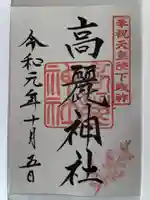 奉祝天皇陛下御即位
高麗神社
令和元年十月五日